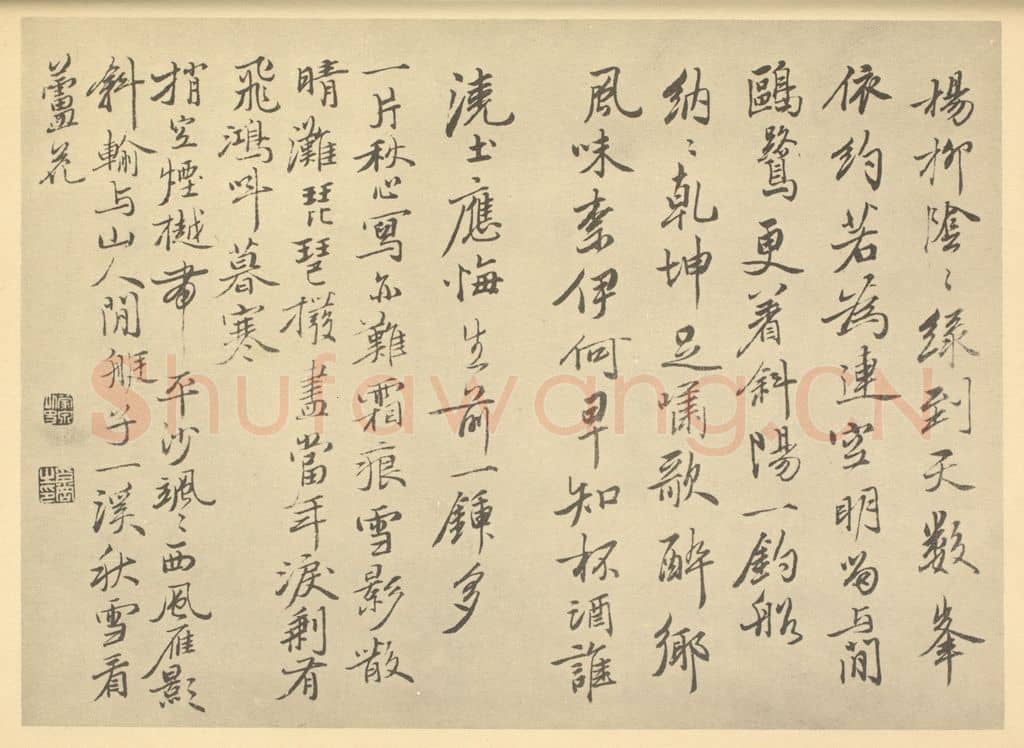 楊柳陰〻緑到天數峯
依約若為連空明留与閒
鷗鷺更着斜陽一釣船
納〻乾坤足嘯歌醉鄉
風味柰伊何早知杯酒誰
澆土應悔生前一鍾多
一片秋心寫亦難霜痕雪影散
晴灘琵琶撥盡當年淚剩有
飛鴻叫暮寒
梢空煙樾帶平沙颯〻西風雁影
斜輸与山人閒艇子一溪秋雪看
蘆花
Shufawang.CN